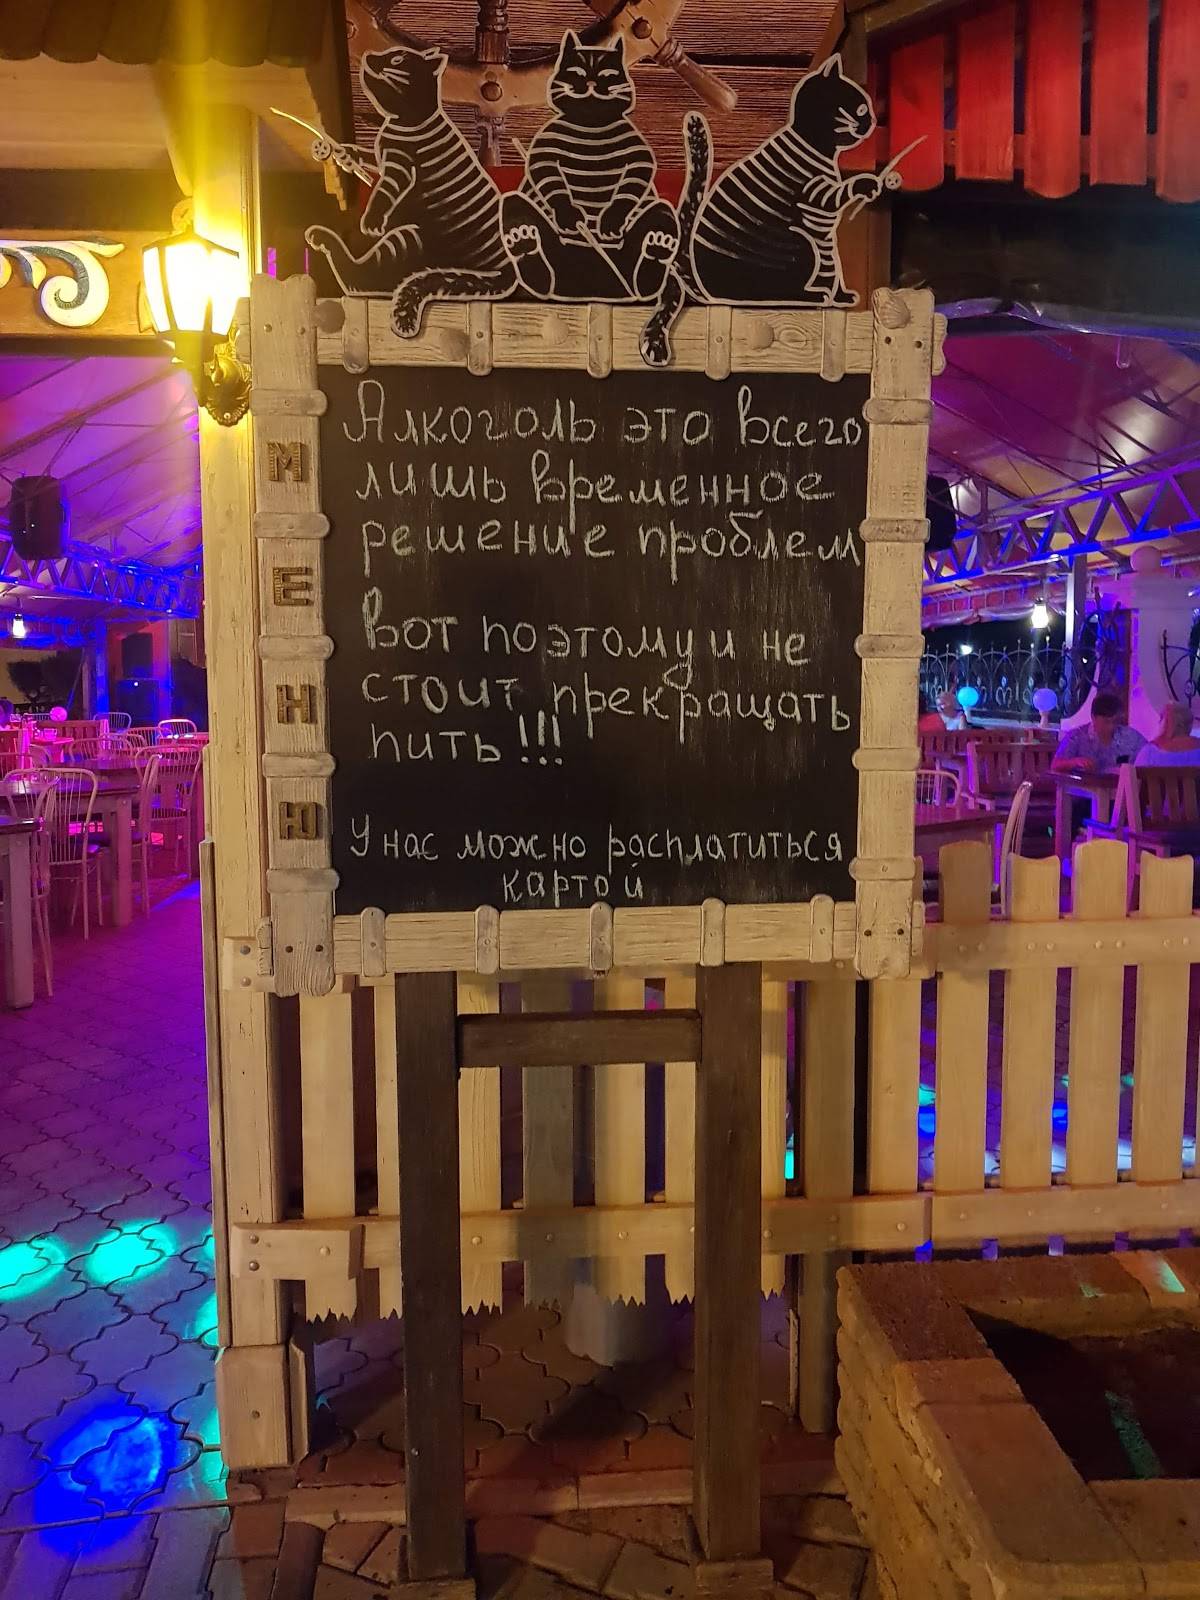 МЕНЮ
Алкоголь это всего
лишь временное
решение проблем
вот поэтому и не
стоит прекращать
пить!!!
У нас можно расплатиться
картой